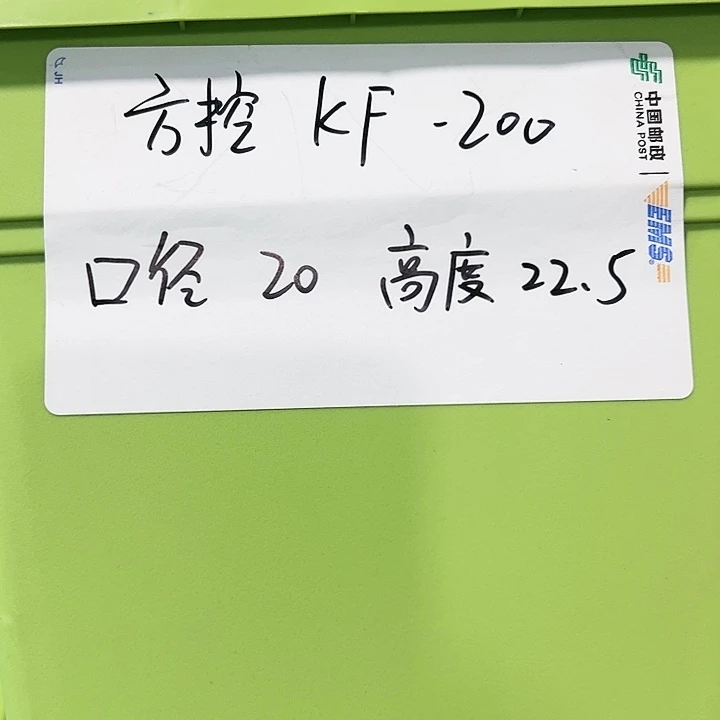 方控 KF-200
口径 20 高度 22.5
中国邮政
CHINA POST
EMS
JH